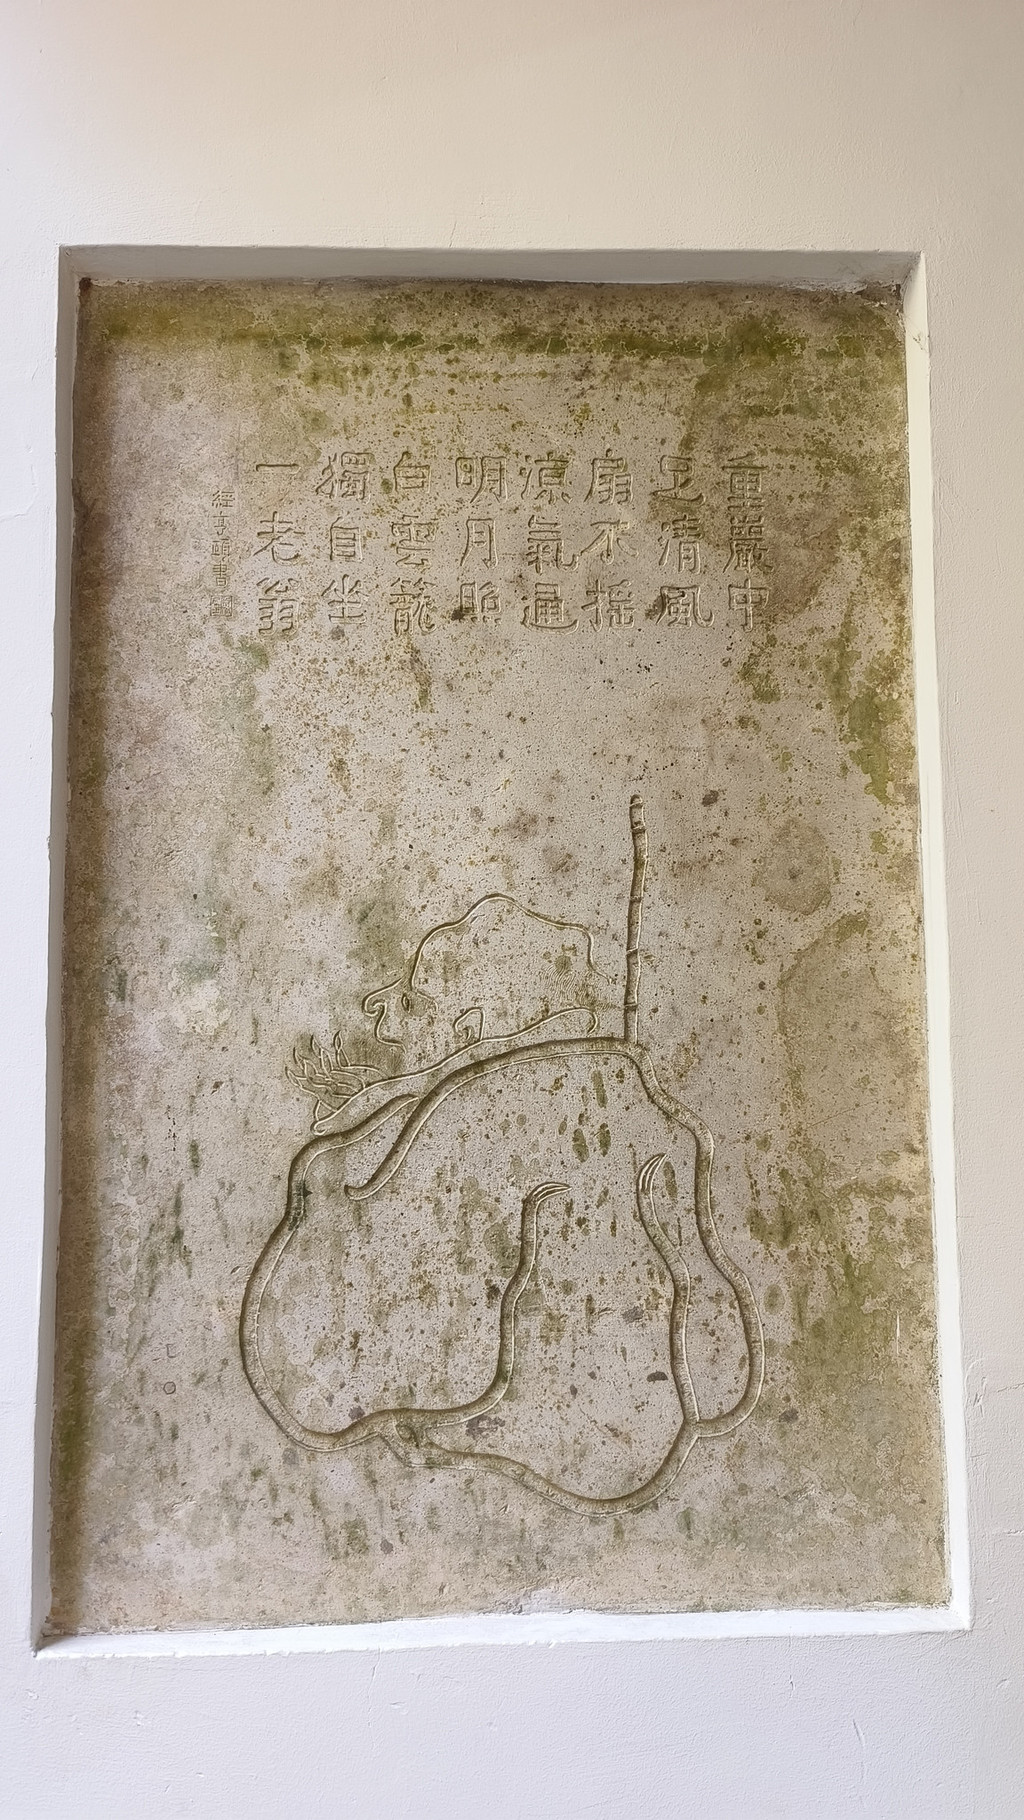 重巖中
足清風
扇不搖
涼氣通
明月照
白雲籠
獨自坐
一老翁
經亨頤書